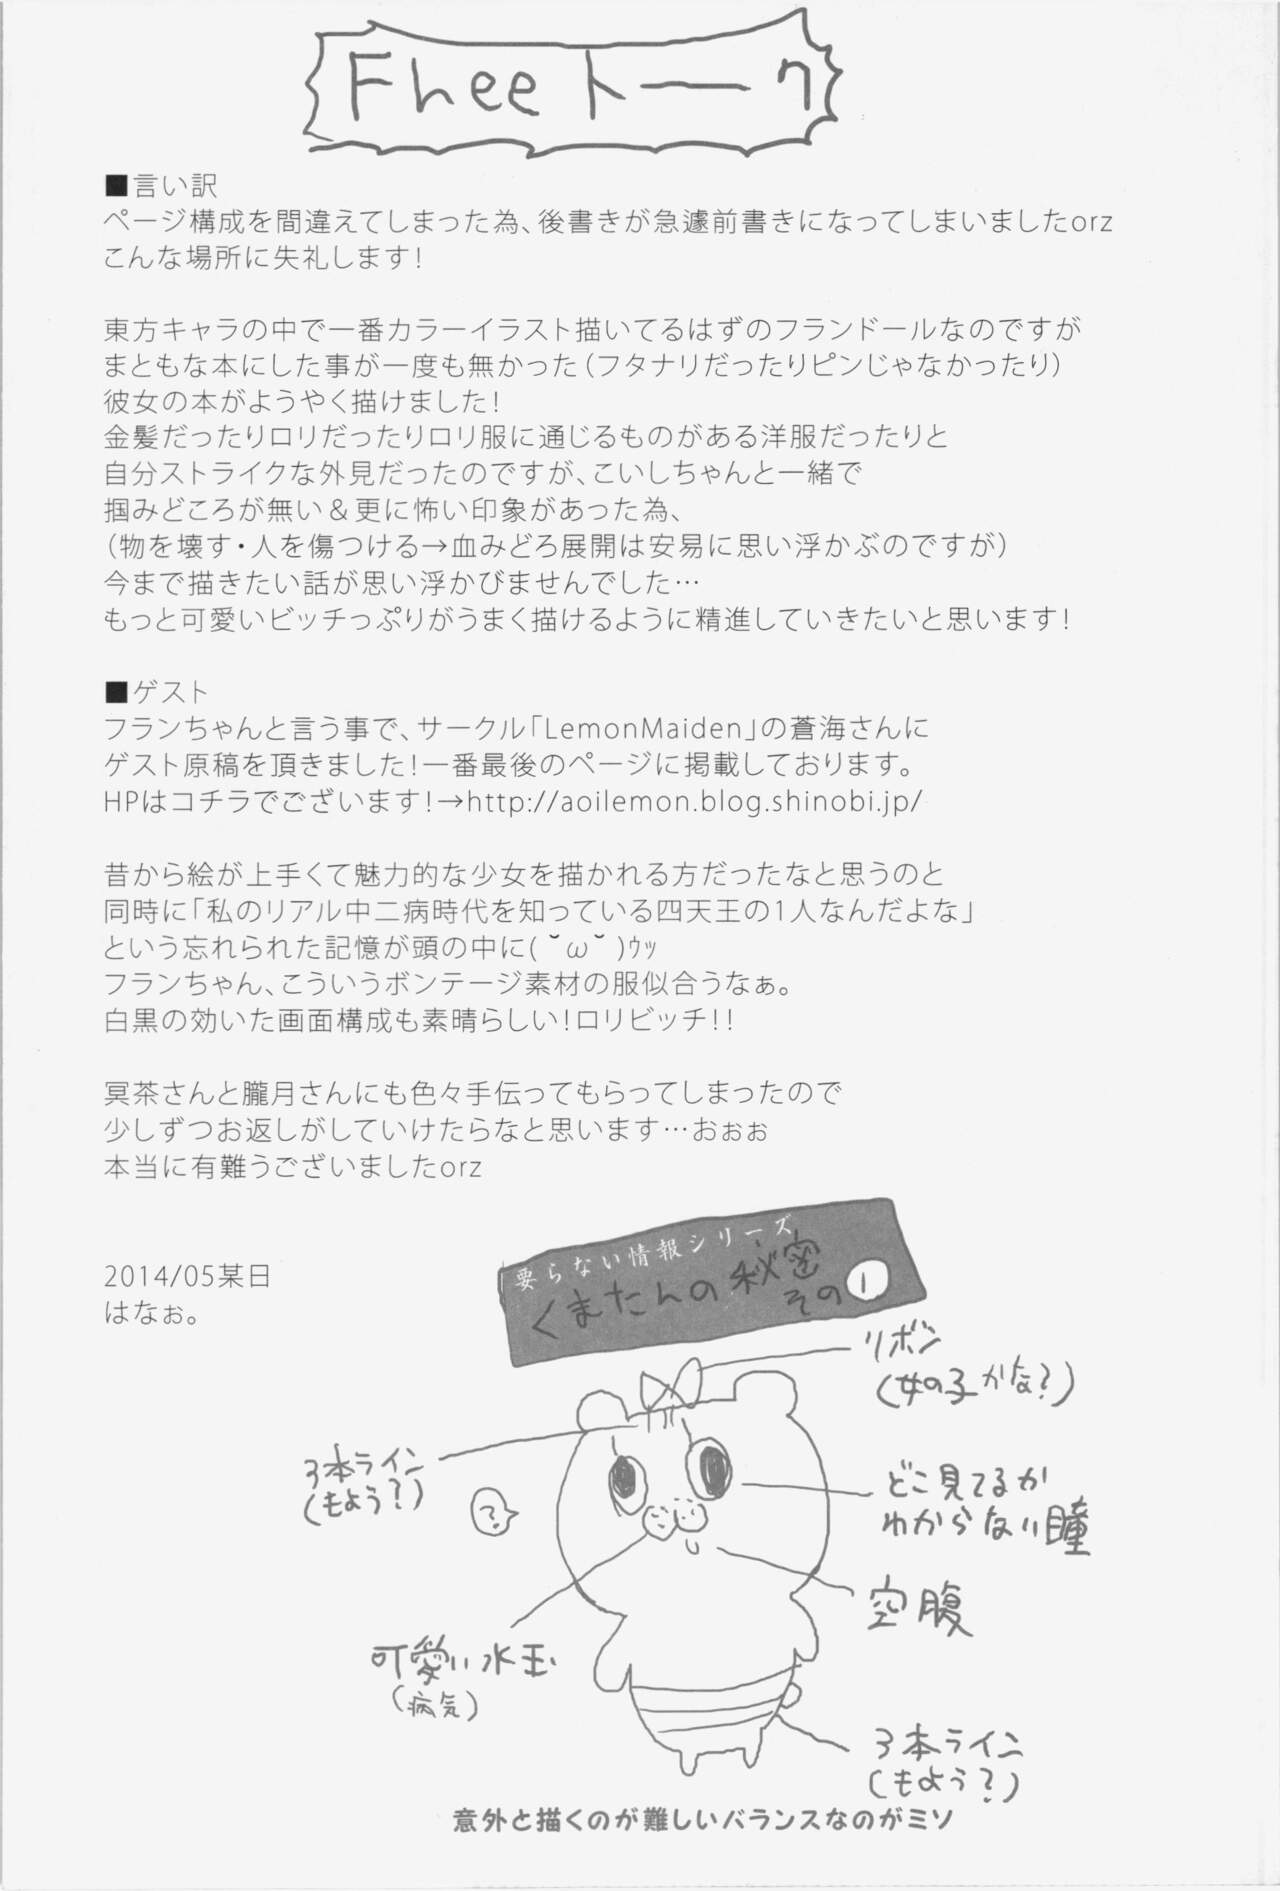 Fheeトーク
■言い訳
ページ構成を間違えてしまった為、後書きが急遽前書きになってしまいましたorz
こんな場所に失礼します！
東方キャラの中で一番カラーイラスト描いてるはずのフランドールなのですが
まともな本にした事が一度も無かった（フタナリだったりピンじゃなかったり）
彼女の本がようやく描けました！
金髪だったりロリだったりロリ服に通じるものがある洋服だったりと
自分ストライクな外見だったのですが、こいしちゃんと一緒で
掴みどころが無い＆更に怖い印象があった為、
（物を壊す・人を傷つける→血みどろ展開は安易に思い浮かぶのですが）
今まで描きたい話が思い浮かびませんでした…
もっと可愛いビッチっぷりがうまく描けるように精進していきたいと思います！
■ゲスト
フランちゃんと言う事で、サークル「LemonMaiden」の蒼海さんに
ゲスト原稿を頂きました！一番最後のページに掲載しております。
HPはコチラでございます！→http://aoilemon.blog.shinobi.jp/
昔から絵が上手くて魅力的な少女を描かれる方だったなと思うのと
同時に「私のリアル中二病時代を知っている四天王の1人なんだよな」
という忘れられた記憶が頭の中に( ˘ω˘ )ｳｯ
フランちゃん、こういうボンテージ素材の服似合うなぁ。
白黒の効いた画面構成も素晴らしい！ロリビッチ！！
冥茶さんと朧月さんにも色々手伝ってもらってしまったので
少しずつお返しがしていけたらなと思います…おぉぉ
本当に有難うございましたorz
2014/05某日
はなぉ。
要らない情報シリーズ
くまたんの秘密
その1
リボン
（女の子かな？）
3本ライン
（もよう？）
？
どこ見てるか
わからない瞳
空腹
可愛い水玉
（病気）
3本ライン
（もよう？）
意外と描くのが難しいバランスなのがミソ